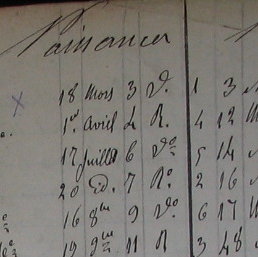 Naissances
18 Mars 3 Vo. 1 3
1er Avril 4 R. 4 12
17 Juillet 6 Vo 5 14
20 Id. 7 Ro. 2 16
16 8re 9 Vo. 6 17
19 9re 11 R 3 48